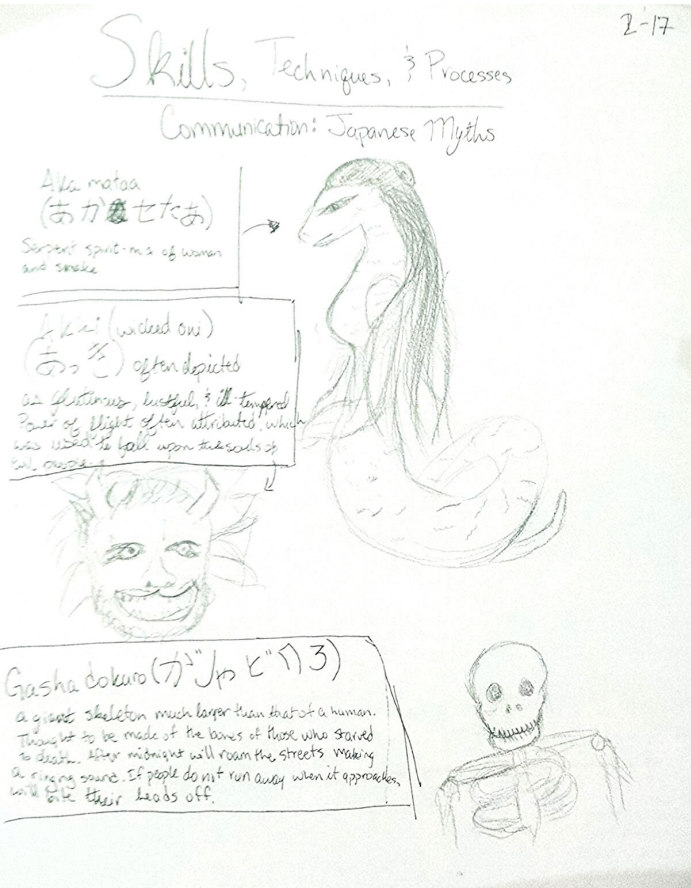 2-17
Skills, Techniques, & Processes
Communication: Japanese Myths
Aka mataa
(あカセたあ)
Serpent spirit- mix of woman
and snake
Akki (wicked oni)
(あっき) often depicted
as glutinous, lustful, & ill-tempered
Power of flight often attributed, which
was used to fall upon the souls of
evil people
Gasha dokuro (ガしゃどくろ)
a giant skeleton much larger than that of a human.
Thought to be made of the bones of those who starved
to death. After midnight will roam the streets making
a ringing sound. If people do not run away when it approaches
will bite their heads off.